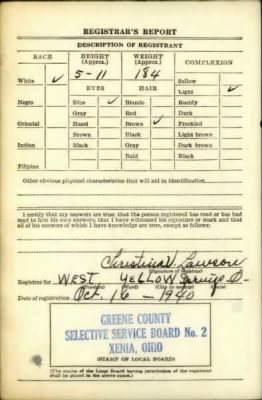 REGISTRAR'S REPORT
DESCRIPTION OF REGISTRANT
RACE HEIGHT (Approx.) WEIGHT (Approx.) COMPLEXION
White ✓ 5-11 184 Sallow
EYES HAIR Light ✓
Negro Blue ✓ Blonde Ruddy
Gray Red Dark
Oriental Hazel Brown ✓ Freckled
Brown Black Light brown
Indian Black Gray Dark brown
Bald Black
Filipino
Other obvious physical characteristics that will aid in identification
I certify that my answers are true; that the person registered has read or has had
read to him his own answers; that I have witnessed his signature or mark and that
all of his answers of which I have knowledge are true, except as follows:
Christina Lawson
(Signature of registrar)
Registrar for WEST YELLOW Springs O.
(Precinct) (Ward) (City or county) (State)
Date of registration Oct. 16 - 1940
GREENE COUNTY
SELECTIVE SERVICE BOARD No. 2
XENIA, OHIO
(STAMP OF LOCAL BOARD)
(The stamp of the Local Board having jurisdiction of the registrant
shall be placed in the above space.)